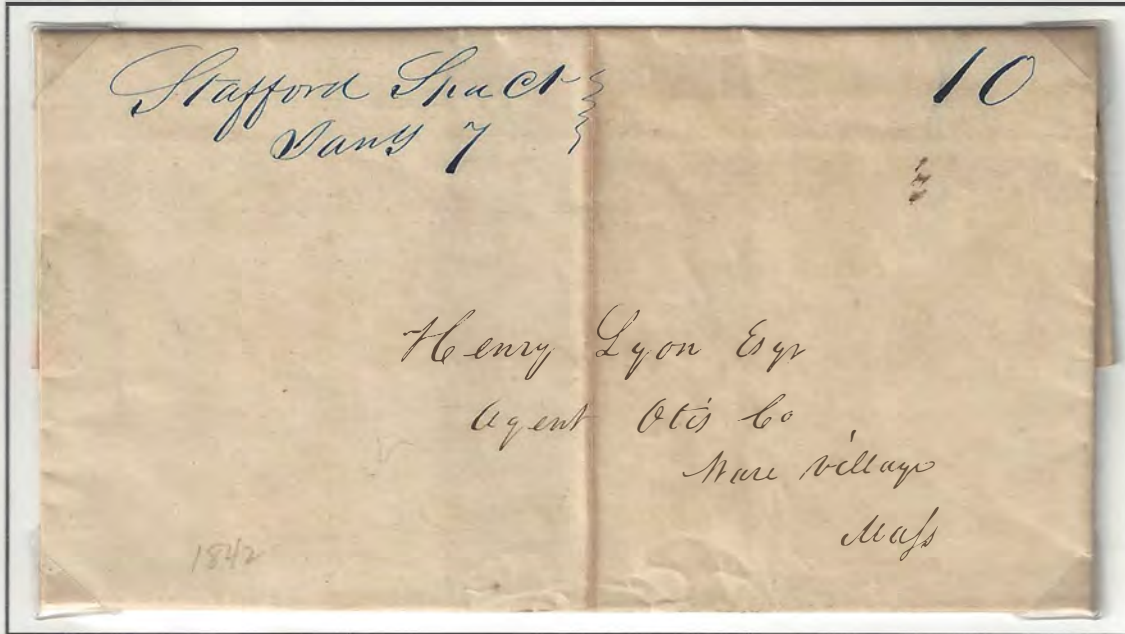 Stafford Spa Ct
Jany 7
10
Henry Lyon Esqr
Agent Otis Co
Ware Village
Mass
1842